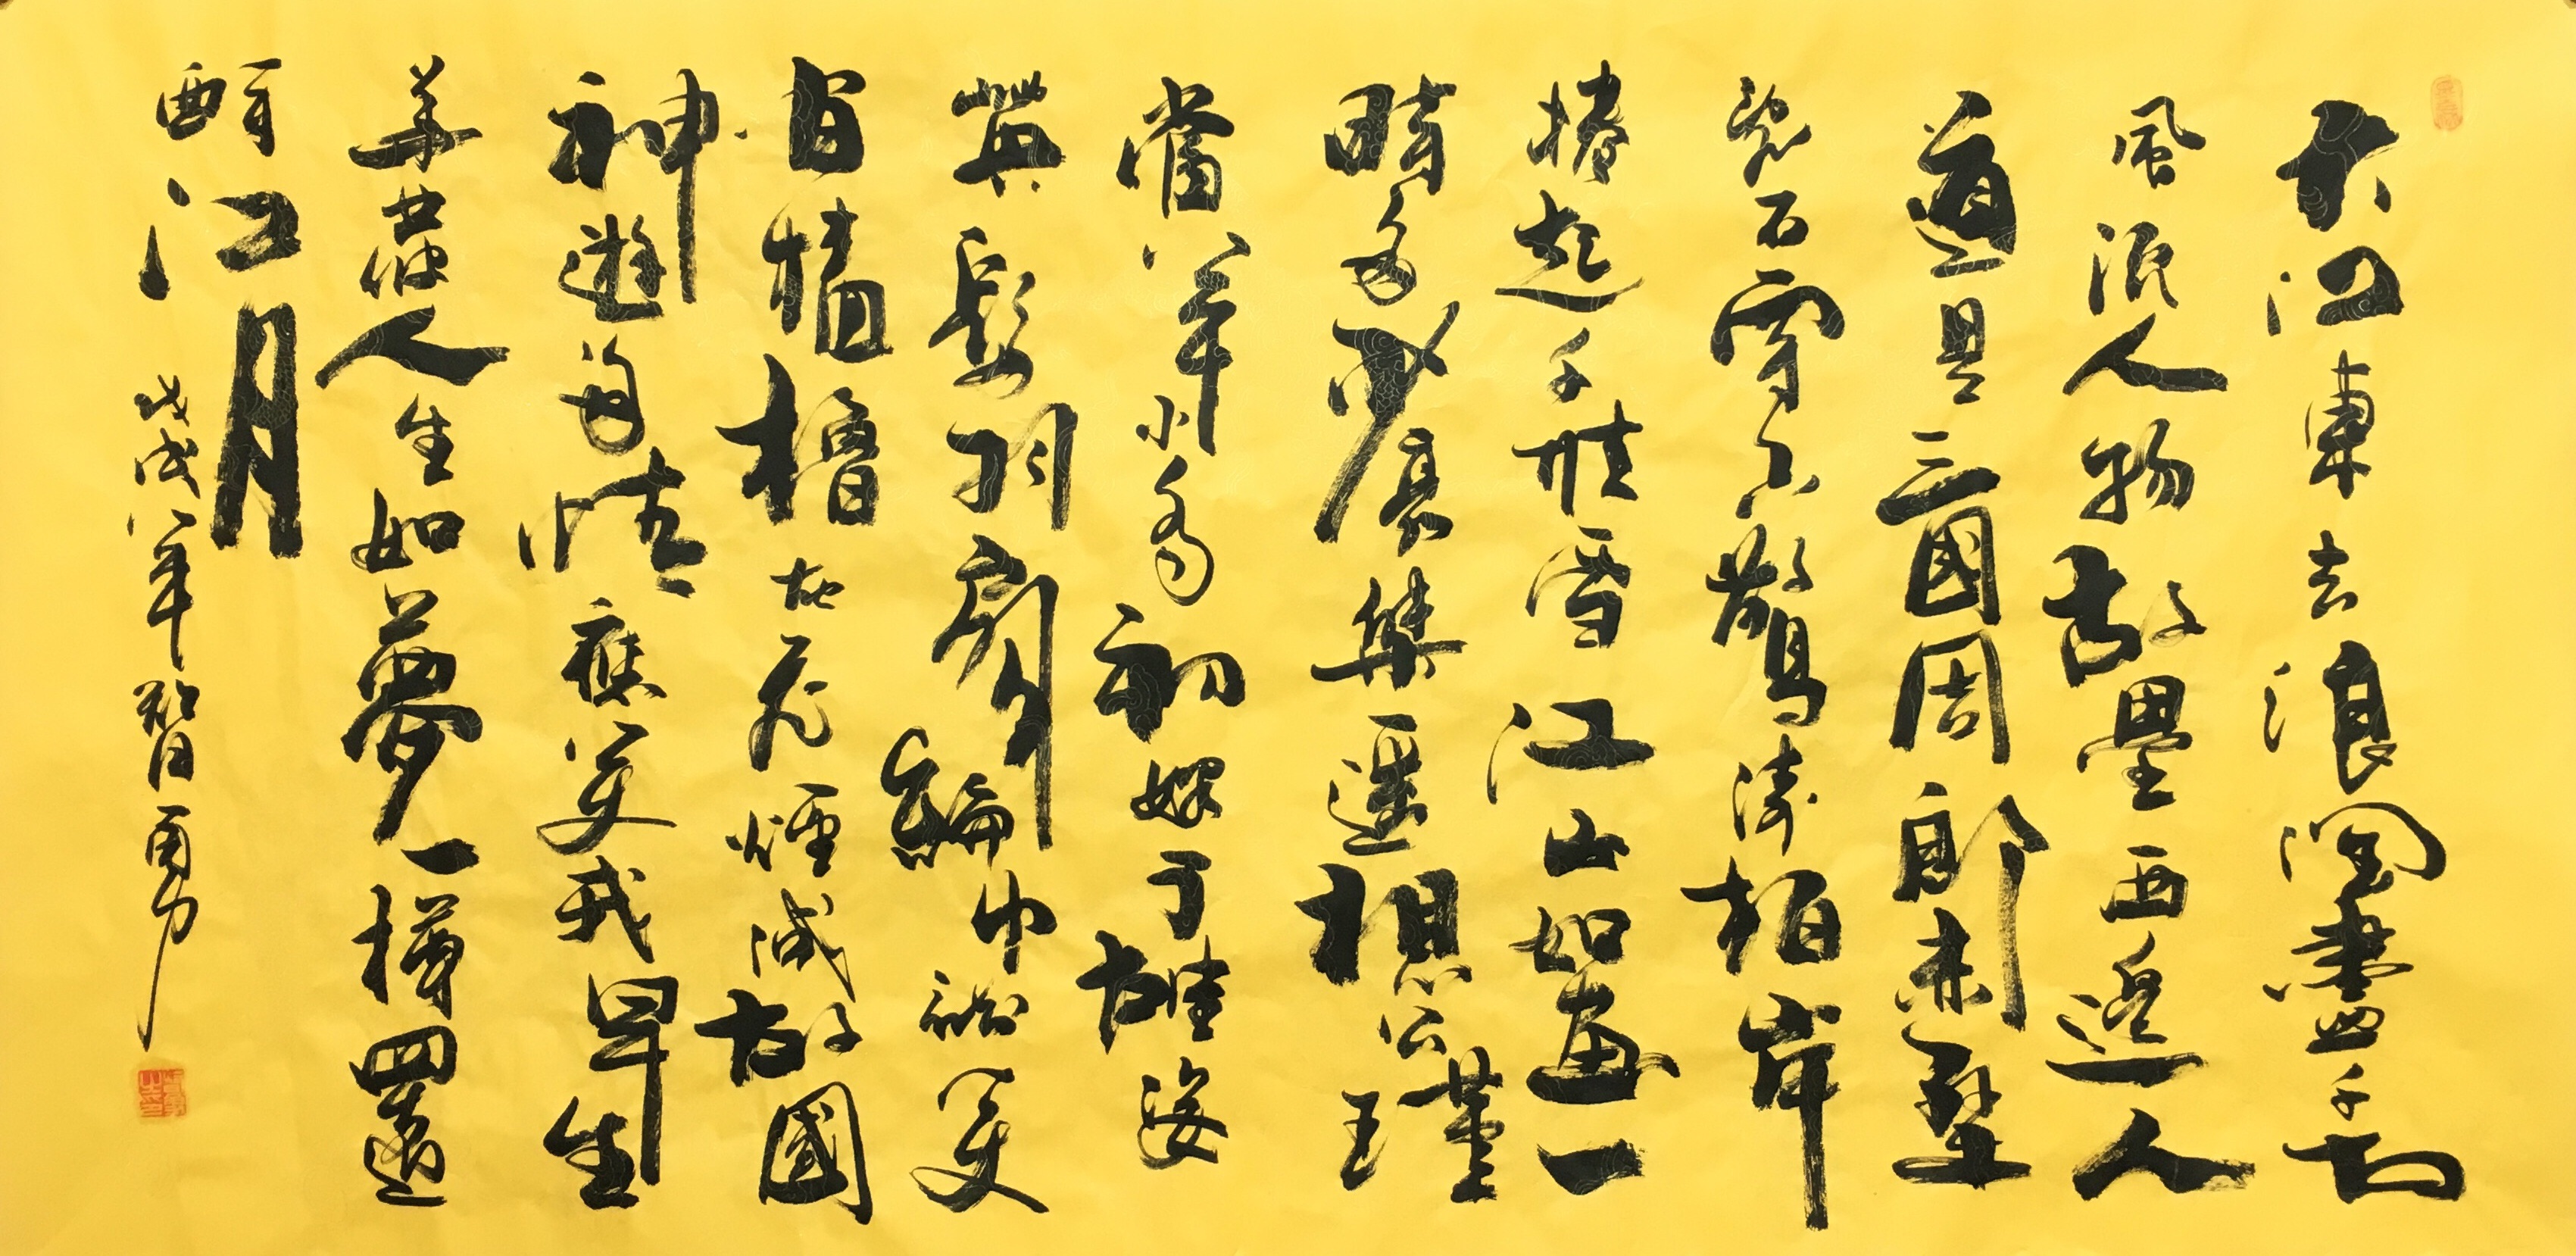 大江東去浪淘盡千古
風流人物故壘西邊人
道是三國周郎赤壁
亂石穿空驚濤拍岸
捲起千堆雪江山如畫一
時多少豪傑遥想公瑾
當年小喬初嫁了雄姿
英髮羽扇綸巾談笑
間檣櫓灰飛煙滅故國
神遊多情應笑我早生
華髮人生如夢一樽還
酹江月
戊戌年智勇